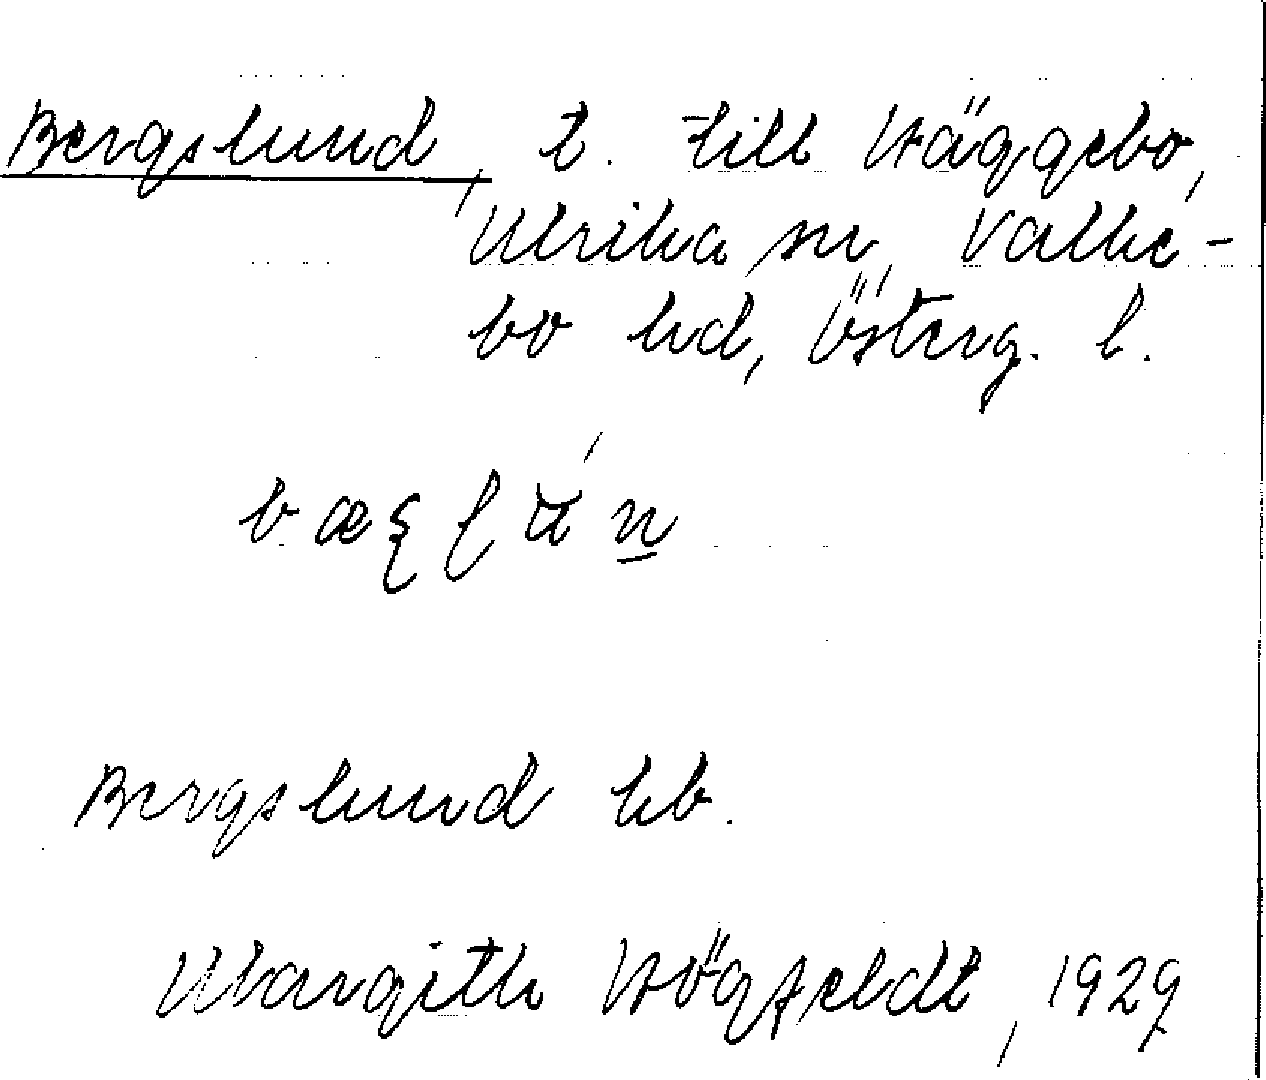 Bergslund, t. till Häggebo,
Ulrika sn, Valke-
bo hd, Österg. l.
Bergslund kb.
Margith Högfeldt, 1929